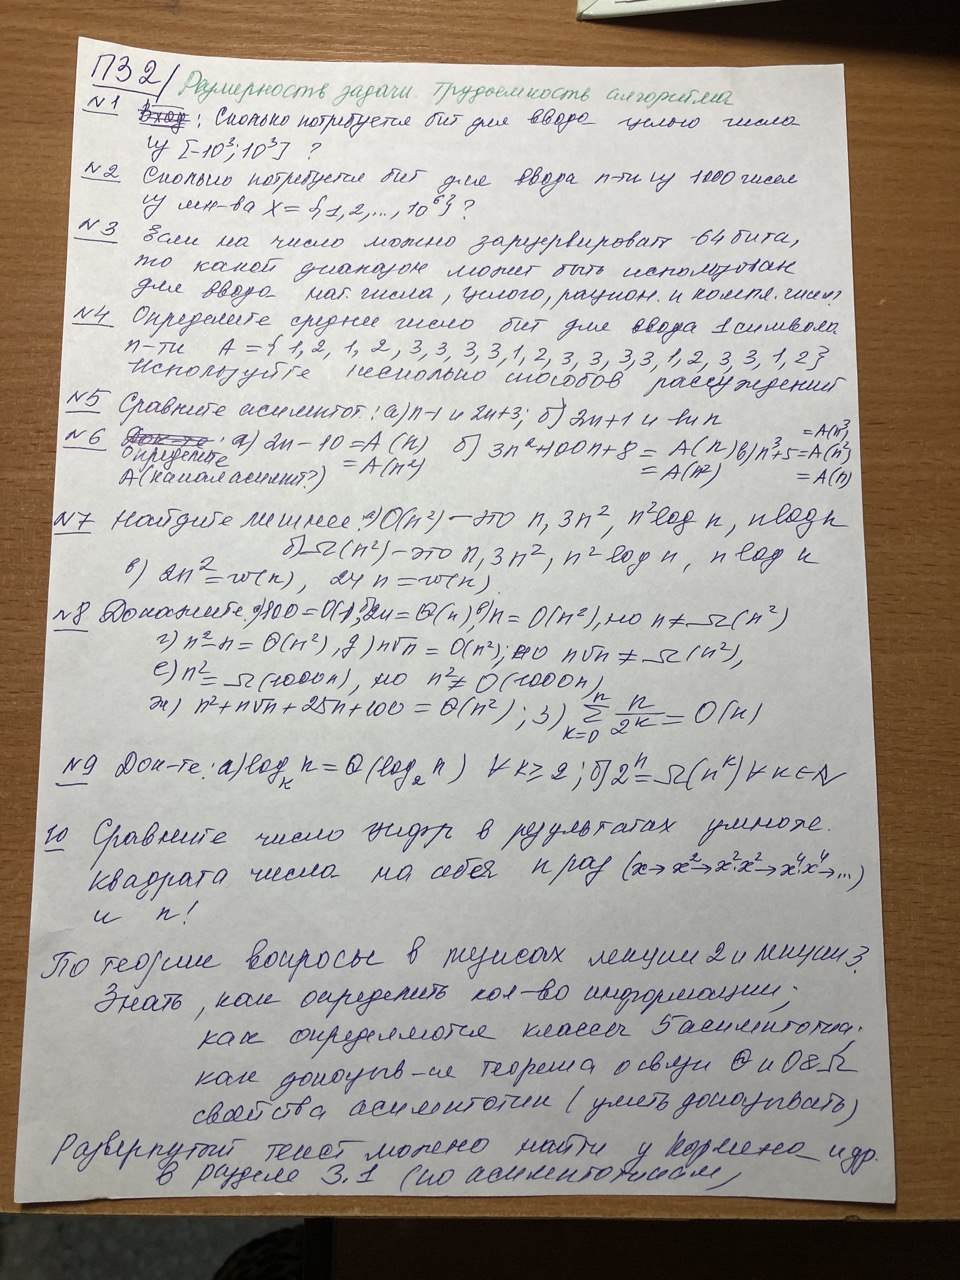 ПЗ 2/ Размерность задачи. Трудоемкость алгоритма
№1 Вход: Сколько потребуется бит для ввода целого числа
из [-10³; 10³] ?
№2 Сколько потребуется бит для ввода п-ти из 1000 чисел
из мн-ва X = {1,2,..., 10⁶}?
№3 Если на число можно зарезервировать 64 бита,
то какой диапазон может быть использован
для ввода нат. числа, целого, рацион. и компл. чисел
№4 Определите среднее число бит для ввода 1 символа
п-ти A = { 1, 2, 1, 2, 3, 3, 3, 3, 1, 2, 3, 3, 3, 3, 1, 2, 3, 3, 1, 2}
Используйте несколько способов рассуждений
№5 Сравните асимптот.: а) n-1 и 2n+3; б) 2n+1 и ln n
№6 Док-те: а) 2n - 10 = A(n) б) 3n²+100n+8 = A(n) в) n³+5 = A(n³)
определите = A(n²) = A(n²) = A(n²)
A (какая асимпт?) = A(n)
№7 Найдите лишнее: а) O(n²) - это n, 3n², n² log n, n log n
б) Ω(n²) - это n, 3n², n² log n, n log n
в) 2n² = w(n), 24n = w(n)
№8 Докажите: а) 100 = O(1), б) 2n = Θ(n), в) n = O(n²), но n ≠ Ω(n²)
г) n²-n = Θ(n²), д) n√n = O(n²), но n√n ≠ Ω(n²),
е) n² = Ω(1000n), но n² ≠ O(1000n)
ж) n²+n√n+25n+100 = Θ(n²); з) ∑ₖ₌₀ⁿ n/2ᵏ = O(n)
№9 Док-те: а) logₖ n = Θ(log₂ n) ∀ k ≥ 2; б) 2ⁿ = Ω(nᵏ) ∀ k ∈ N
10 Сравните число цифр в результатах умнож.
квадрата числа на себя n раз (x→x²→x²·x²→x⁴·x⁴→...)
и n!
По теории вопросы в тезисах лекции 2 и лекции 3.
Знать, как определить кол-во информации;
как определяются классы 5 асимптотик;
как доказыв-ся теорема о связи Θ и O & Ω
свойства асимптотик (уметь доказывать)
Развернутый текст можно найти у Кормена и др.
в разделе 3.1 (по асимптотикам)